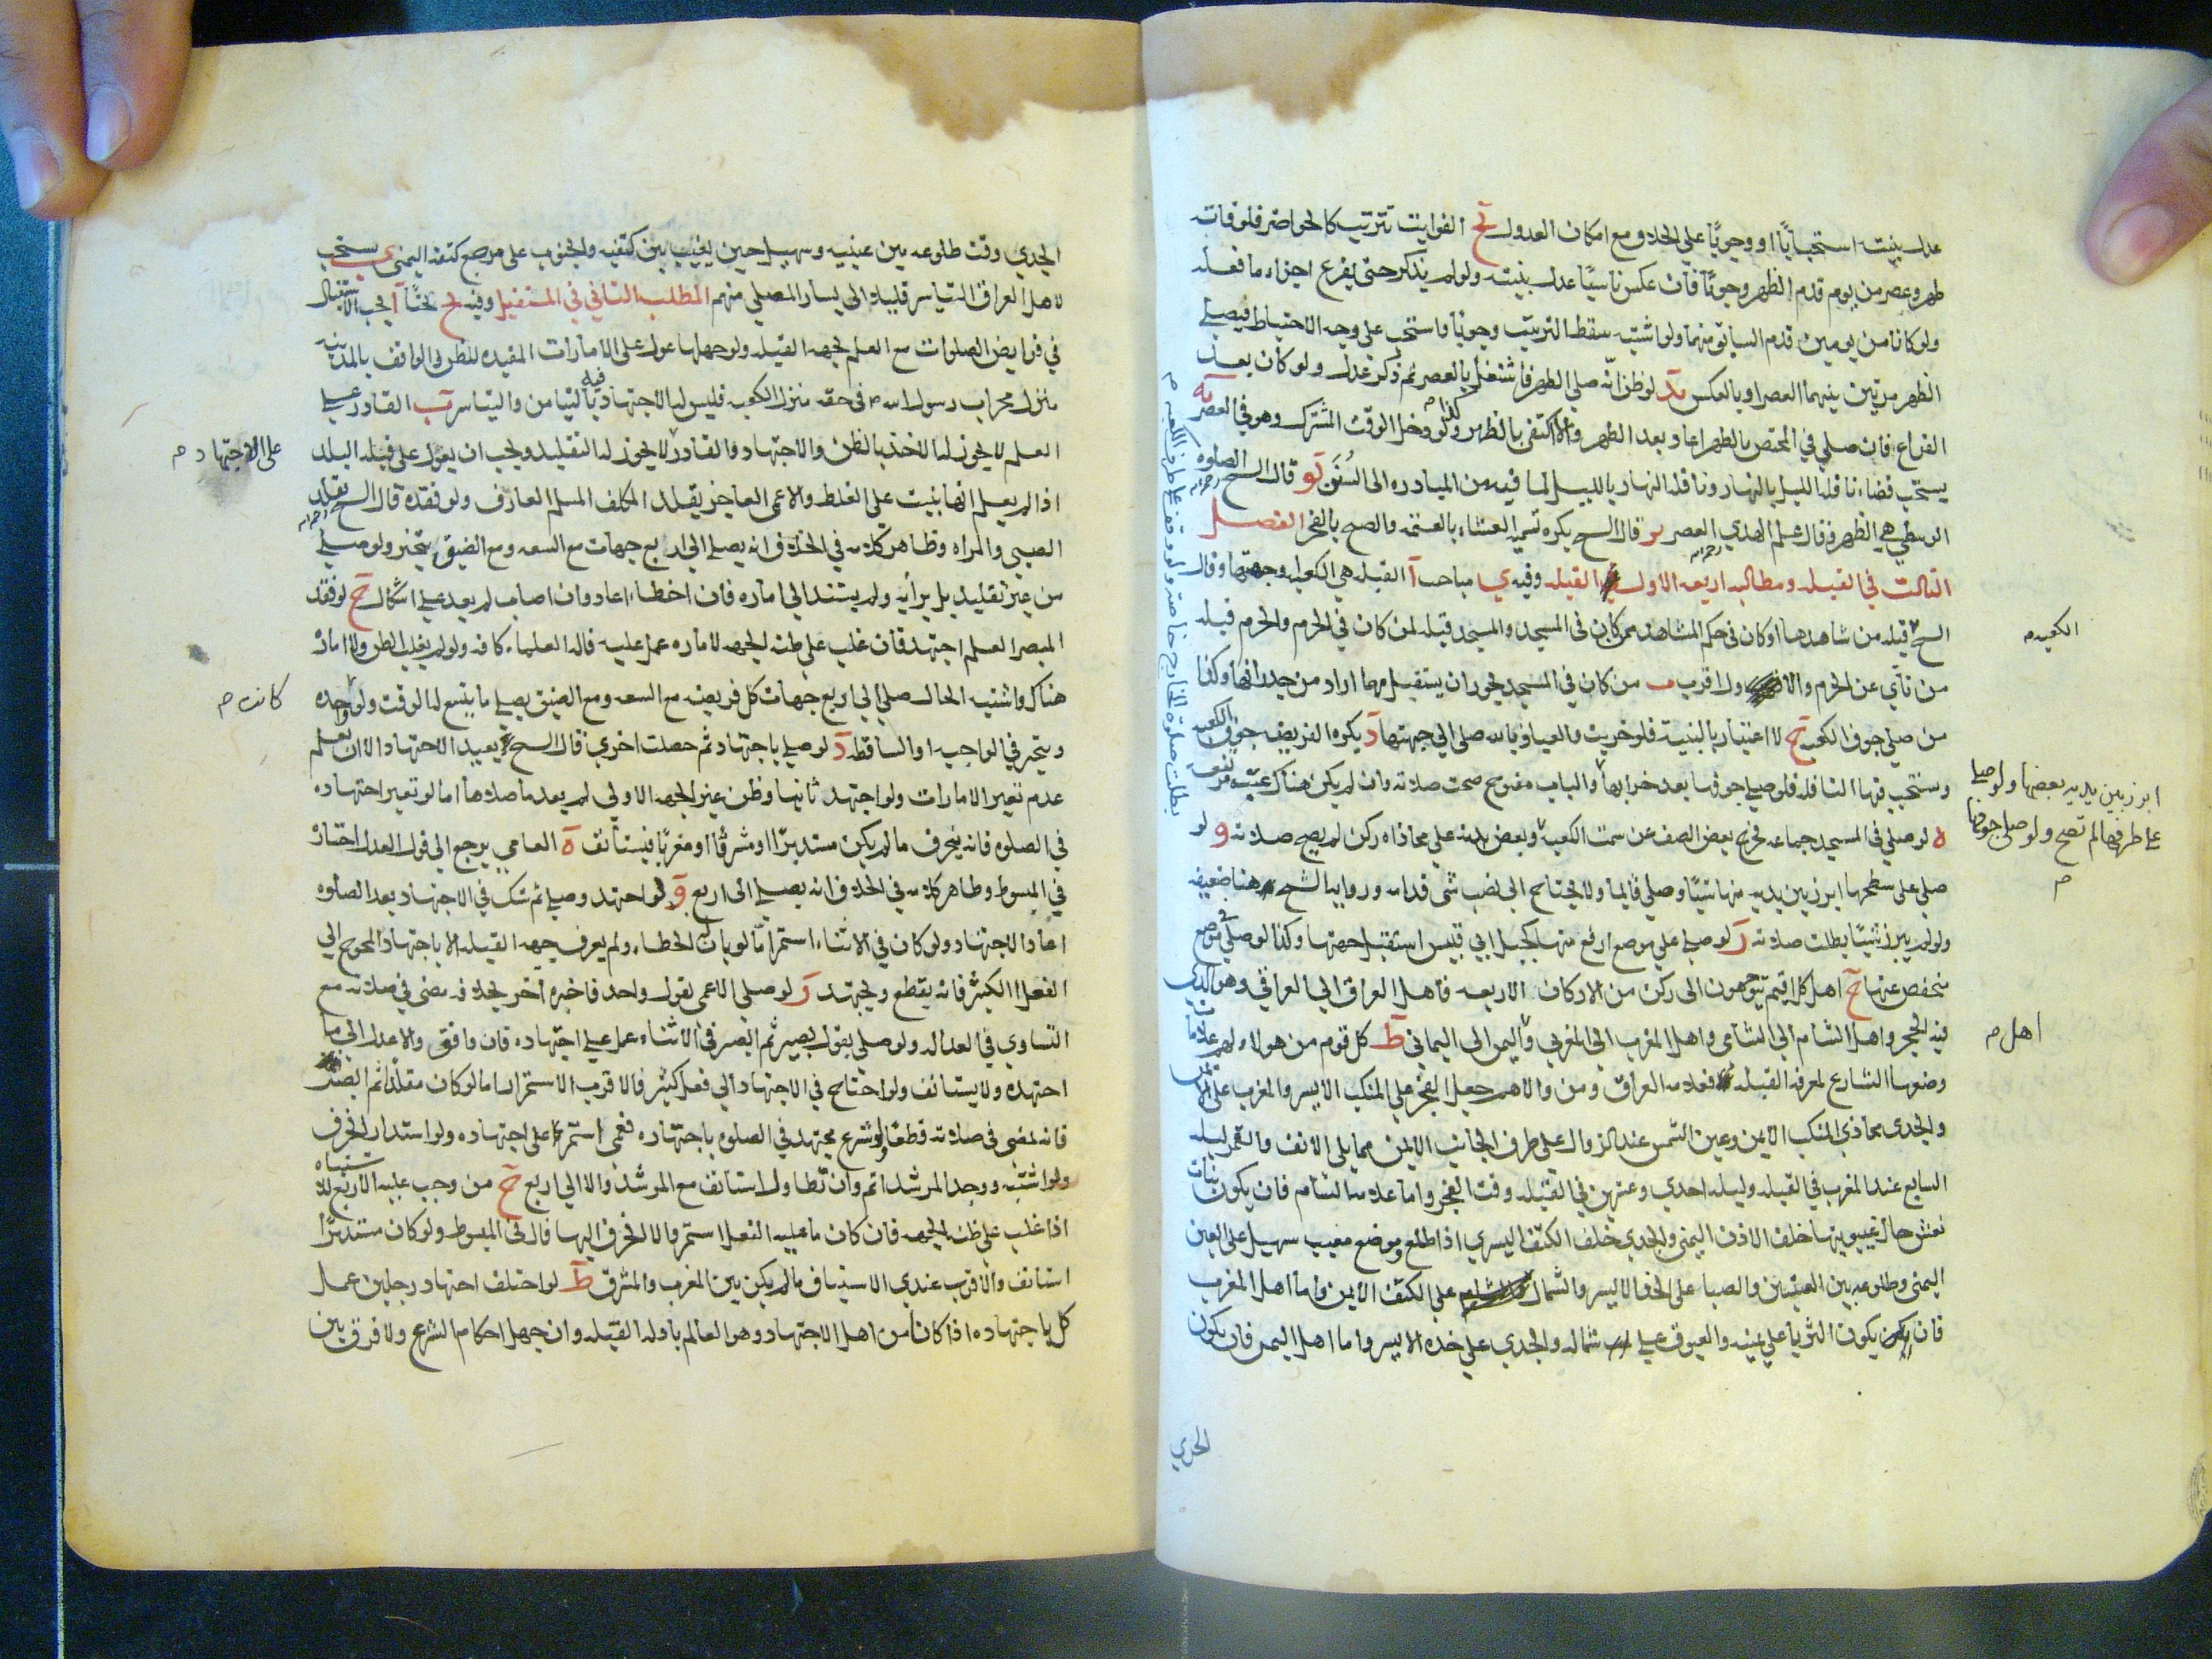 عدل بنيته استحبابًا او وجوبًا علي الخلاف ومع امكان العدول يح الفوايت تترتب كالحواضر فلو فاته
ظهر وعصر من يوم قدم الظهر وجوبًا فان عكس ناسيًا عدل بنيته ولو لم يذكر حتى يفرغ اجزاء ما فعله
ولو كانا من يومين قدم السابق منهما ولو اشتبه سقط الترتيب وجوبًا واستحب على وجه الاحتياط فيصلي
الظهر مرتين بينهما العصر او بالعكس يد لو ظن انه صلى الظهر فاشتغل بالعصر ثم ذكر عدل ولو كان بعد
الفراغ فان صلي في المختص بالظهر اعاد بعد الظهر والا اكتفى بالظهر وكذا لو دخل الوقت المشترك وهو في العصر يه
يستحب قضاء نافلة الليل بالنهار ونافلة النهار بالليل لما فيه من المبادره الى السنن يو قال الشيخ الصلوه
الوسطي هي الظهر وقال علم الهدي العصر يز قال الشيخ يكره تسميه العشاء بالعتمه والصبح بالفجر الفصل
الثالث في القبله ومطالبه اربعه الاول القبله وفيه ي مباحث آ القبله هي الكعبه وجهتها وقال
الشيخ قبله من شاهدها او كان في حكم المشاهد ممن كان في المسجد والمسجد قبله لمن كان في الحرم والحرم قبله
الكعبه م
من نأي عن الحرم والاول اقرب ب من كان في المسجد يجوز ان يستقبل مهما اراد من جدرانها وكذا
من صلي جوف الكعبه ج لا اعتبار بالبنيه فلو خربت والعياذ بالله صلى الي جهتها د يكره الفريضه جوف الكعبه
وتستحب فيها النافله فلو صلي جوفها بعد خرابها والباب مفتوح صحت صلاته وان لم يكن هناك عتبه
ابرز بين يديه بعضها ولو صلي
على طرفها لم تصح ولو صلى جوفها
م
ه لو صلي في المسجد جماعه فخرج بعض الصف عن سمت الكعبه وبعض بدنه علي محاذاه ركن لم يصح صلاته و لو
صلي على سطحها ابرز بين يديه منها شيئًا وصلي قايما ولا يحتاج الى نصب شي قدامه ورواية الشيخ هنا ضعيفه
ولو لم يبرز شيئًا بطلت صلاته ز لو صلي علي موضع ارفع منها كجبل ابي قبيس استقبل جهتها وكذا لو صلي في موضع
منخفض عنها ح اهل كل اقليم يتوجهون الى ركن من الاركان الاربعه فاهل العراق الي العراقي وهو الذي
فيه الحجر واهل الشام الي الشامي واهل المغرب الى المغربي واليمن الى اليماني ط كل قوم من هولاء لهم علامات
اهل م
وضعها الشارع لمعرفة القبله فعلامه العراق ومن والاهم جعل الفجر علي المنكب الايسر والمغرب على الايمن
والجدي بمحاذي المنكب الايمن وعين الشمس عند الزوال على طرف الحاجب الايمن مما يلي الانف والقمر ليله
السابع عند المغرب في القبله وليله احدي وعشرين في القبله وقت الفجر واما علامه الشام فان يكون بنات
نعش حال غيبوبتها خلف الاذن اليمنى والجدي خلف الكتف اليسري اذا طلع وموضع مغيب سهيل على العين
اليمنى وطلوعه بين العينين والصبا على الخد الايسر والشمال على الكتف الايمن واما اهل المغرب
فان يكون الثريا علي يمينه والعيوق علي شماله والجدي علي خده الايسر واما اهل اليمن فان يكون
الجدي
بطلت صلوة الخارج خاصة ولو وقف على طرف الكعبه م
الجدي وقت طلوعه بين عينيه وسهيل حين يغيب بين كتفيه والجنوب على مرجع كتفه اليمنى ي يستحب
لاهل العراق التياسر قليلا الى يسار المصلي منهم المطلب الثاني في المستقبل وفيه يح بحثًا آ يجب الاستقبال
في فرايض الصلوات مع العلم بجهة القبله ولو جهلها عول على الامارات المفيده للظن والواقف بالمدينه
ينزل محراب رسول الله م في حقه منزلة الكعبه فليس له الاجتهاد فيه بالتيامن والتياسر ب القادر علي
العلم لا يجوز له الاخذ بالظن والاجتهاد والقادر لا يجوز له التقليد ويجب ان يعول على قبله البلد
على الاجتهاد م
اذا لم يعلم انها بنيت على الغلط والاعمى العاجز يقلد المكلف المسلم العارف ولو فقده قال الشيخ يقلد
الصبي والمراه وظاهر كلامه في الخلاف انه يصلي الي اربع جهات مع السعه ومع الضيق يتخير ولو صلي
من غير تقليد بل برأيه ولم يستند الي اماره فان اخطاء اعاد وان اصاب لم يعد علي اشكال ج لو فقد
المبصر العلم اجتهد فان غلب علي ظنه الجهه لاماره عمل عليه قاله العلماء كافه ولو لم يغلب الظن ولا اماره
هناك واشتبه الحال صلي الي اربع جهات كل فريضه مع السعه ومع الضيق يصلي ما يتسع له الوقت ولو واحده
كانت م
ويتخير في الواجبه او الساقطه د لو صلي باجتهاد ثم حصلت اخري قال الشيخ يعيد الاجتهاد الا ان يعلم
عدم تغير الامارات ولو اجتهد ثانيا وظن غير الجهه الاولي لم يعد ما صلاها اما لو تغير اجتهاده
في الصلوه فانه ينحرف ما لم يكن مستدبرًا او مشرقًا او مغربًا فيستانف ه العامي يرجع الي قول العدل اختاره
في المبسوط وظاهر كلامه في الخلاف انه يصلي الى اربع و لو اجتهد وصلي ثم شك في الاجتهاد بعد الصلوه
اعاد الاجتهاد ولو كان في الاثناء استمر اما لو بان له الخطاء ولم يعرف جهه القبله الا باجتهاد المحوج الي
الفعل الكثير فانه يقطع ويجتهد ز لو صلي الاعمى لقول واحد فاخبره آخر بخلافه مضى في صلاته مع
التساوي في العداله ولو صلي بقول بصير ثم ابصر في الاثناء عمل علي اجتهاده فان وافق والا عدل الى ما
اجتهده ولا يستانف ولو احتاج في الاجتهاد الي فعل كثير فالاقرب الاستمرار اما لو كان مقلدًا ثم ابصر
فانه يمضى في صلاته قطعًا ولو شرع مجتهد في الصلوه باجتهاده فعمى استمر على اجتهاده ولو استدار انحرف
ولو اشتبه ووجد المرشد اتم وان تطاول استانف مع المرشد والا الي اربع ح من وجب عليه الاربع للاشتباه
اذا غلب علي ظنه الجهه فان كان ما عليه الفعل استمر والا انحرف اليها قال في المبسوط ولو كان مستدبرًا
استانف والاقرب عندي الاستيناف ما لم يكن بين المغرب والمشرق ط لو اختلف اجتهاد رجلين عمل
كل باجتهاده اذا كانا من اهل الاجتهاد وهو العالم بادله القبله وان جهل احكام الشرع ولا فرق بين